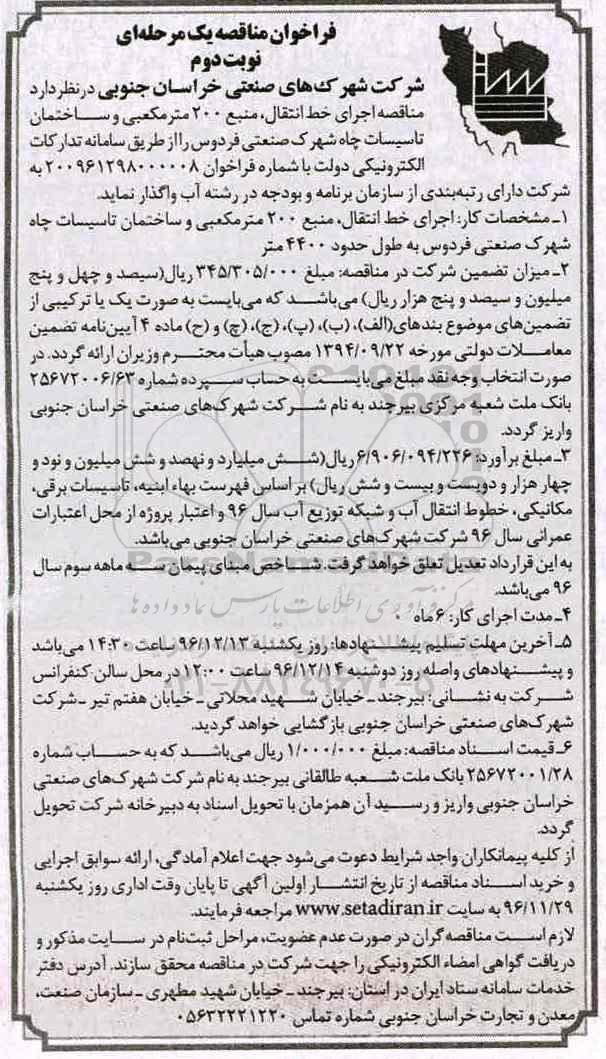 فراخوان مناقصه یک مرحله‌ای
نوبت دوم
شرکت شهرک‌های صنعتی خراسان جنوبی در نظر دارد
مناقصه اجرای خط انتقال، منبع ۲۰۰ مترمکعبی و ساختمان
تاسیسات چاه شهرک صنعتی فردوس را از طریق سامانه تدارکات
الکترونیکی دولت با شماره فراخوان ۲۰۰۹۶۱۲۹۸۰۰۰۰۰۸ به
شرکت دارای رتبه‌بندی از سازمان برنامه و بودجه در رشته آب واگذار نماید.
۱ـ مشخصات کار: اجرای خط انتقال، منبع ۲۰۰ مترمکعبی و ساختمان تاسیسات چاه
شهرک صنعتی فردوس به طول حدود ۴۴۰۰ متر
۲ـ میزان تضمین شرکت در مناقصه: مبلغ ۳۴۵/۳۰۵/۰۰۰ ریال(سیصد و چهل و پنج
میلیون و سیصد و پنج هزار ریال) می‌باشد که می‌بایست به صورت یک یا ترکیبی از
تضمین‌های موضوع بندهای(الف)، (ب)، (پ)، (ج)، (چ) و (ح) ماده ۴ آیین‌نامه تضمین
معاملات دولتی مورخه ۱۳۹۴/۰۹/۲۲ مصوب هیأت محترم وزیران ارائه گردد. در
صورت انتخاب وجه نقد مبلغ می‌بایست به حساب سپرده شماره ۲۵۶۷۲۰۰۶/۶۳
بانک ملت شعبه مرکزی بیرجند به نام شرکت شهرک‌های صنعتی خراسان جنوبی
واریز گردد.
۳ـ مبلغ برآورد: ۶/۹۰۶/۰۹۴/۲۲۶ ریال(شش میلیارد و نهصد و شش میلیون و نود و
چهار هزار و دویست و بیست و شش ریال) بر اساس فهرست بهاء ابنیه، تاسیسات برقی،
مکانیکی، خطوط انتقال آب و شبکه توزیع آب سال ۹۶ و اعتبار پروژه از محل اعتبارات
عمرانی سال ۹۶ شرکت شهرک‌های صنعتی خراسان جنوبی می‌باشد.
به این قرارداد تعدیل تعلق خواهد گرفت. شاخص مبنای پیمان سه ماهه سوم سال
۹۶ می‌باشد.
۴ـ مدت اجرای کار: ۶ ماه
۵ـ آخرین مهلت تسلیم پیشنهادها: روز یکشنبه ۹۶/۱۲/۱۳ ساعت ۱۴:۳۰ می‌باشد
و پیشنهادهای واصله روز دوشنبه ۹۶/۱۲/۱۴ ساعت ۱۲:۰۰ در محل سالن کنفرانس
شرکت به نشانی: بیرجند ـ خیابان شهید محلاتی ـ خیابان هفتم تیر ـ شرکت
شهرک‌های صنعتی خراسان جنوبی بازگشایی خواهد گردید.
۶ـ قیمت اسناد مناقصه: مبلغ ۱/۰۰۰/۰۰۰ ریال می‌باشد که به حساب شماره
۲۵۶۷۲۰۰۱/۲۸ بانک ملت شعبه طالقانی بیرجند به نام شرکت شهرک‌های صنعتی
خراسان جنوبی واریز و رسید آن همزمان با تحویل اسناد به دبیرخانه شرکت تحویل
گردد.
از کلیه پیمانکاران واجد شرایط دعوت می‌شود جهت اعلام آمادگی، ارائه سوابق اجرایی
و خرید اسناد مناقصه از تاریخ انتشار اولین آگهی تا پایان وقت اداری روز یکشنبه
۹۶/۱۱/۲۹ به سایت www.setadiran.ir مراجعه فرمایند.
لازم است مناقصه گران در صورت عدم عضویت، مراحل ثبت‌نام در سایت مذکور و
دریافت گواهی امضاء الکترونیکی را جهت شرکت در مناقصه محقق سازند. آدرس دفتر
خدمات سامانه ستاد ایران در استان: بیرجند ـ خیابان شهید مطهری ـ سازمان صنعت،
معدن و تجارت خراسان جنوبی شماره تماس ۰۵۶۳۲۲۲۱۲۲۰